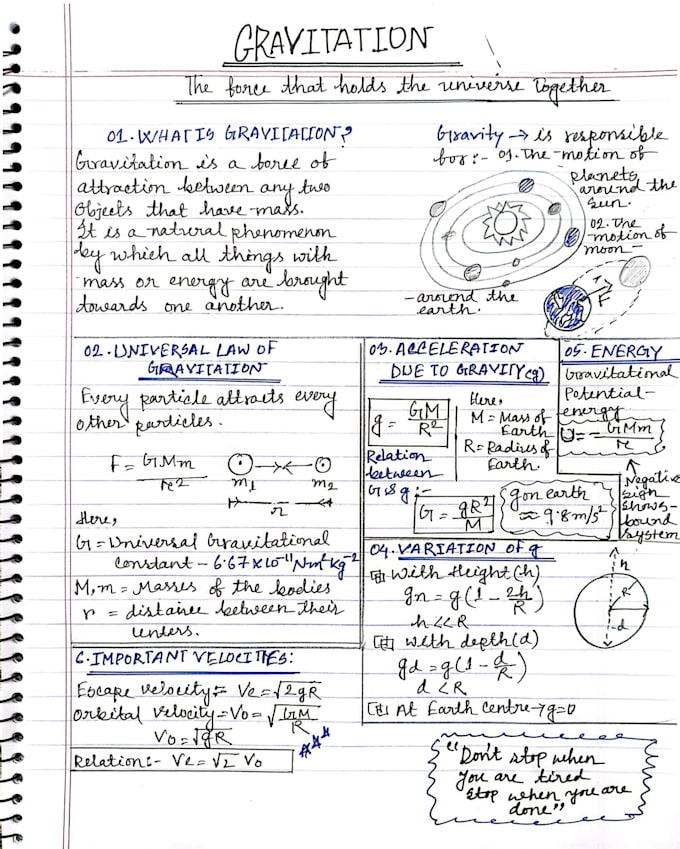 GRAVITATION
The force that holds the universe together
01. WHAT IS GRAVITATION?
Gravitation is a force of
attraction between any two
Objects that have mass.
It is a natural phenomenon
by which all things with
mass or energy are brought
towards one another.
Gravity → is responsible
for:- 01. The motion of
planets
around the
sun.
02. The
motion of
moon -
- around the
earth.
F
02. UNIVERSAL LAW OF
GRAVITATION
Every particle attracts every
other particles.
F = GMm/r²
m1 m2
r
Here,
G = Universal Gravitational
constant - 6.67×10⁻¹¹Nm²kg⁻²
M, m = Masses of the bodies
r = distance between their
centers.
03. ACCELERATION
DUE TO GRAVITY (g)
g = GM/R²
Here,
M = Mass of
Earth
R = Radius of
Earth.
Relation
between
G & g :-
G = gR²/M
g on earth
≈ 9.8 m/s²
05. ENERGY
Gravitational
Potential-
energy
U = - GMm/r
Negative
sign
shows-
bound
system
04. VARIATION OF g
With Height (h)
gn = g(1 - 2h/R)
h << R
With depth (d)
gd = g(1 - d/R)
d < R
At Earth centre → g=0
h
R
d
6. IMPORTANT VELOCITIES:
Escape velocity:- Ve = √2gR
Orbital velocity = Vo = √GM/R
Vo = √gR
Relation:- Ve = √2 Vo
"Don't stop when
You are tired
Stop when you are
done"